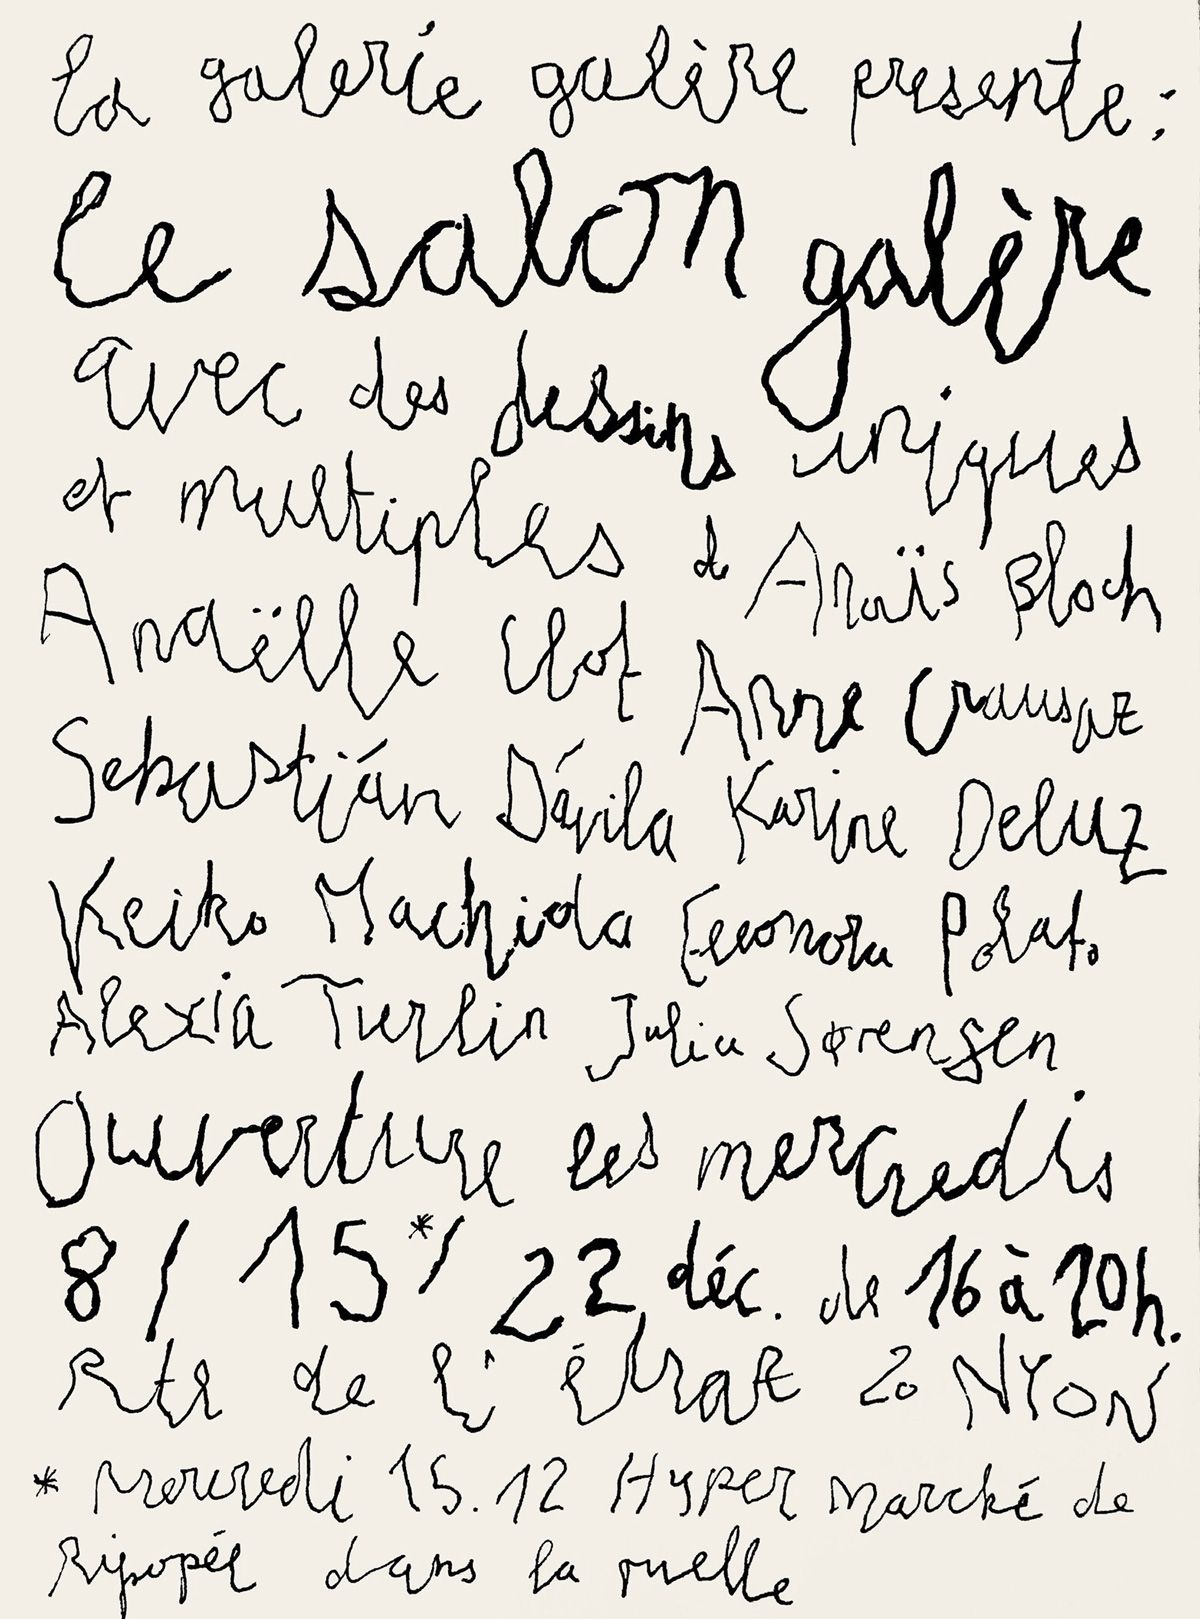 la galerie galère presente :
le salon galère
avec des dessins uniques
et multiples de Anaïs Bloch
Anaëlle Clot Anne Crausaz
Sebastián Dávila Karine Deluz
Keiko Machida Eleonora Polato
Alexia Turlin Julia Sørensen
Ouverture les mercredis
8 / 15* / 22 déc. de 16 à 20h.
Rte de l' étraz 20 NYON
* mercredi 15.12 Hyper Marché de
Ripopée dans la ruelle